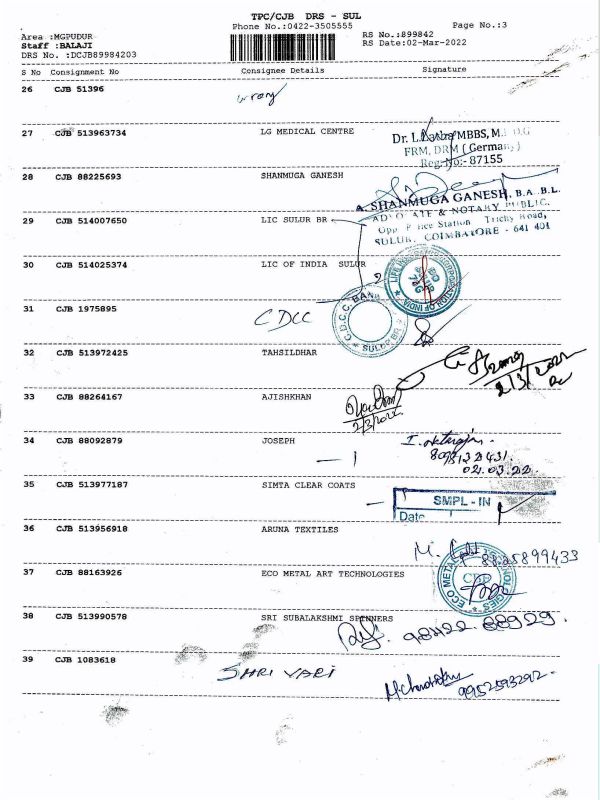 TPC/CJB DRS - SUL
Phone No.:0422-3505555
Page No.:3
Area :MGPUDUR
RS No.:899842
Staff :BALAJI
RS Date:02-Mar-2022
DRS No. :DCJB89984203
S No Consignment No Consignee Details Signature
26 CJB 51396 wrong
27 CJB 513963734 LG MEDICAL CENTRE
MBBS,
FRM, DRM ( Germany )
Reg.No:- 87155
28 CJB 88225693 SHANMUGA GANESH
SHANMUGA GANESH, B.A., B.L.
ADVOCATE & NOTARY PUBLIC,
Opp Police Station Trichy Road,
SULUR, COIMBATORE - 641 401
29 CJB 514007650 LIC SULUR BR
30 CJB 514025374 LIC OF INDIA SULUR
LIFE INSURANCE CORPORATION OF INDIA
31 CJB 1975895 CDCC
C.D.C.C. BANK
SULUR BR
32 CJB 513972425 TAHSILDHAR
2/3/2022
33 CJB 88264167 AJISHKHAN
2/3/2022
34 CJB 88092879 JOSEPH
02.03.22
35 CJB 513977187 SIMTA CLEAR COATS
SMPL - IN
Date
36 CJB 513956918 ARUNA TEXTILES
8825899433
37 CJB 88163926 ECO METAL ART TECHNOLOGIES
ECO METAL ART TECHNOLOGIES
38 CJB 513990578 SRI SUBALAKSHMI SPINNERS
98422 88929.
39 CJB 1083618 SHRI VARI
9952593292